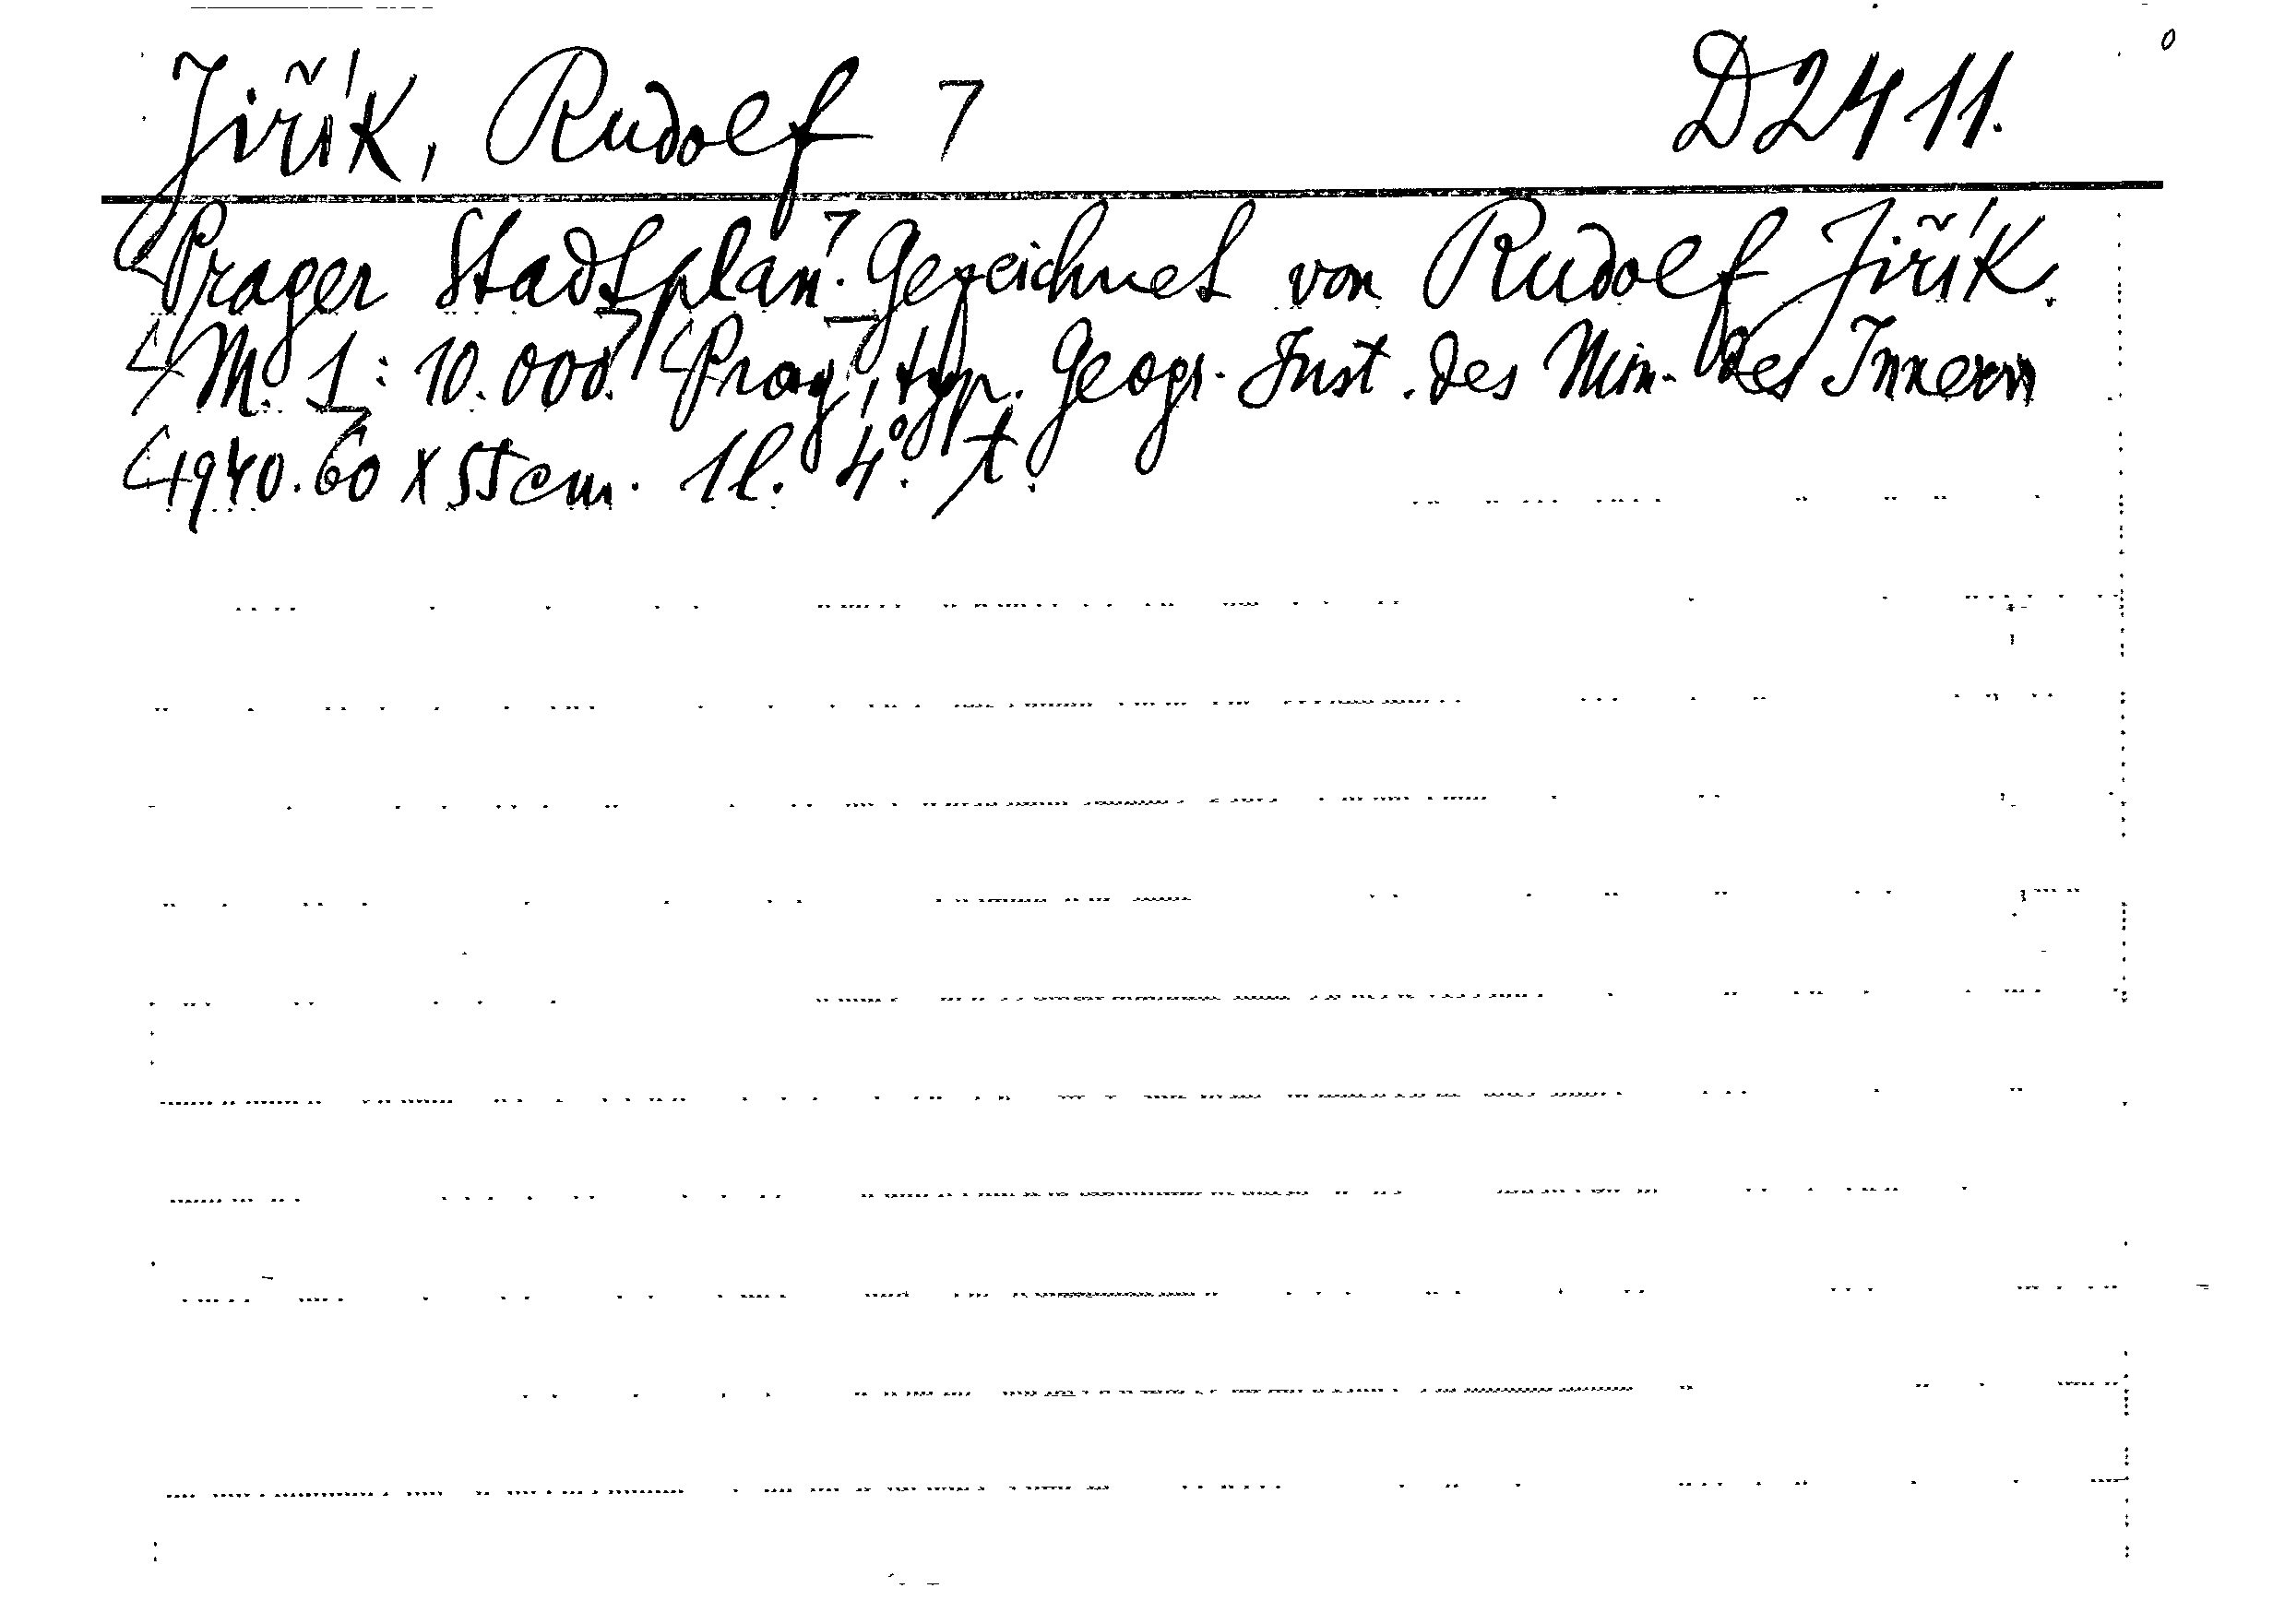 Jiřík, Rudolf D2411.
Prager Stadtplan. Gezeichnet von Rudolf Jiřík.
M. 1:10.000. Prag, typ. Geogr. Inst. des Min. des Innern
1940. 60 x 55 cm. 1 l. 4°. t.